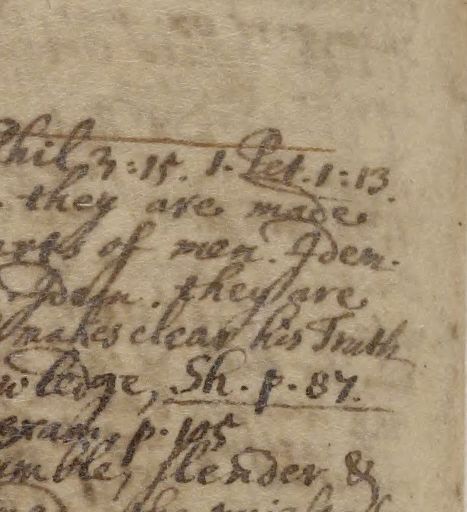 Phil 3:15. 1. Pet. 1:13.
they are made
of men. Idem.
Idem. they are
makes clear his Truth
ledge, Sh. p. 87.
p. 105
umble, slender &
the